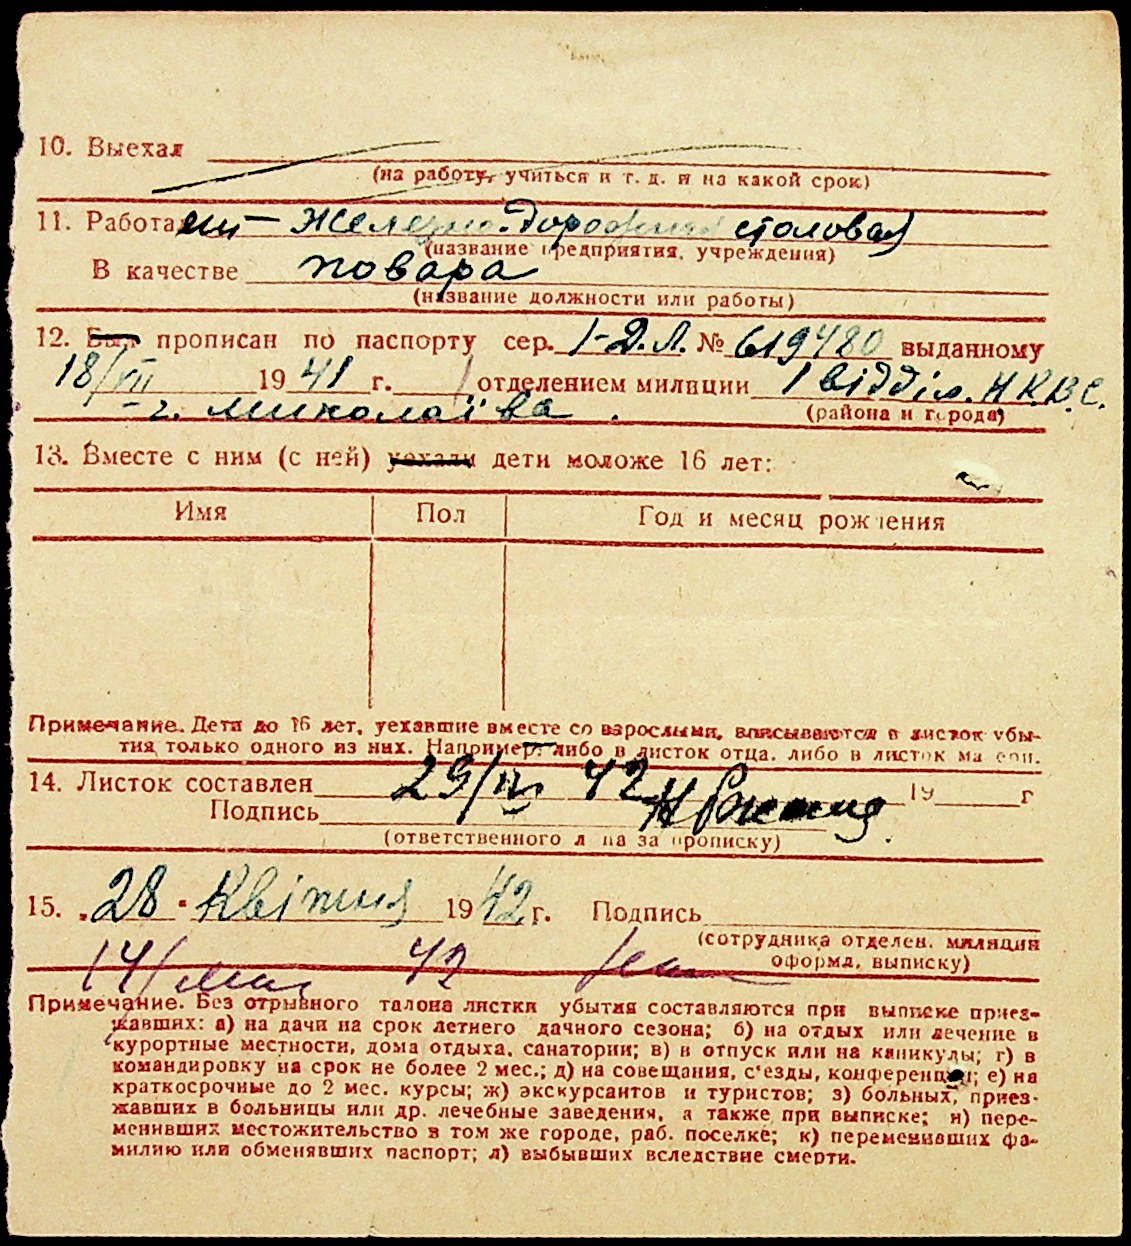 10. Выехал
(на работу, учиться и т. д. и на какой срок)
11. Работает — Железно-дорожная столовая
(название предприятия, учреждения)
В качестве повара
(название должности или работы)
12. Был прописан по паспорту сер. I-Д.Л. № 619480 выданному
18/VII 1941 г. отделением милиции I відділ. Н.К.В.С.
г. Миколаїва.
(района и города)
13. Вместе с ним (с ней) уехали дети моложе 16 лет:
Имя Пол Год и месяц рождения
Примечание. Дети до 16 лет, уехавшие вместе со взрослыми, вписываются в листок убы-
тия только одного из них. Например: либо в листок отца, либо в листок матери.
14. Листок составлен 29/IV 42 19 г
Подпись
(ответственного лица за прописку)
15. „28" Квітня 1942 г. Подпись
(сотрудника отделен. милиции
оформл. выписку)
14/ мая 42
Примечание. Без отрывного талона листки убытия составляются при выписке приез-
жавших: а) на дачи на срок летнего дачного сезона; б) на отдых или лечение в
курортные местности, дома отдыха, санатории; в) в отпуск или на каникулы; г) в
командировку на срок не более 2 мес.; д) на совещания, с'езды, конференции; е) на
краткосрочные до 2 мес. курсы; ж) экскурсантов и туристов; з) больных, приез-
жавших в больницы или др. лечебные заведения, а также при выписке; и) пере-
менивших местожительство в том же городе, раб. поселке; к) переменивших фа-
милию или обменявших паспорт; л) выбывших вследствие смерти.